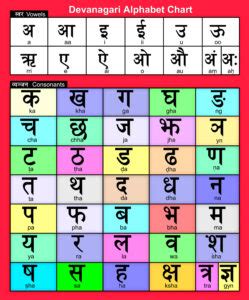 Devanagari Alphabet Chart
स्वर Vowels
अ आ इ ई उ ऊ
a aa i ii u uu
ऋ ए ऐ ओ औ अं अः
e ai o au
व्यान्जन Consonants
क ख ग घ ङ
ka kha ga gha ng
च छ ज झ ञ
cha chha ja jha yn
ट ठ ड ढ ण
ta tha da dha na
त थ द ध न
ta tha da dha na
प फ ब भ म
pa pha ba bha ma
य र ल व श
ya ra la wa sha
ष स ह क्ष त्र ज्ञ
sha sa ha ksha tra gyn